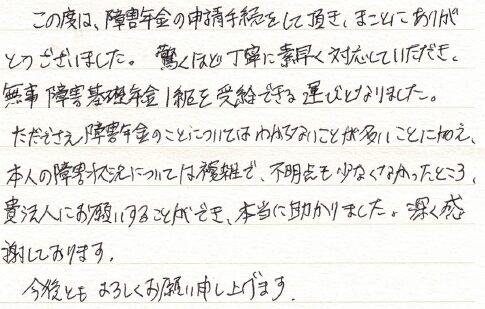 この度は、障害年金の申請手続をして頂き、まことにありが
とうございました。驚くほど丁寧に素早く対応していただき、
無事障害基礎年金1級を受給できる運びとなりました。
ただでさえ障害年金のことについてはわからないことが多いことに加え、
本人の障害状況については複雑で、不明点も少なくなかったところ、
貴法人にお願いすることができ、本当に助かりました。深く感
謝しております。
今後ともよろしくお願い申し上げます.